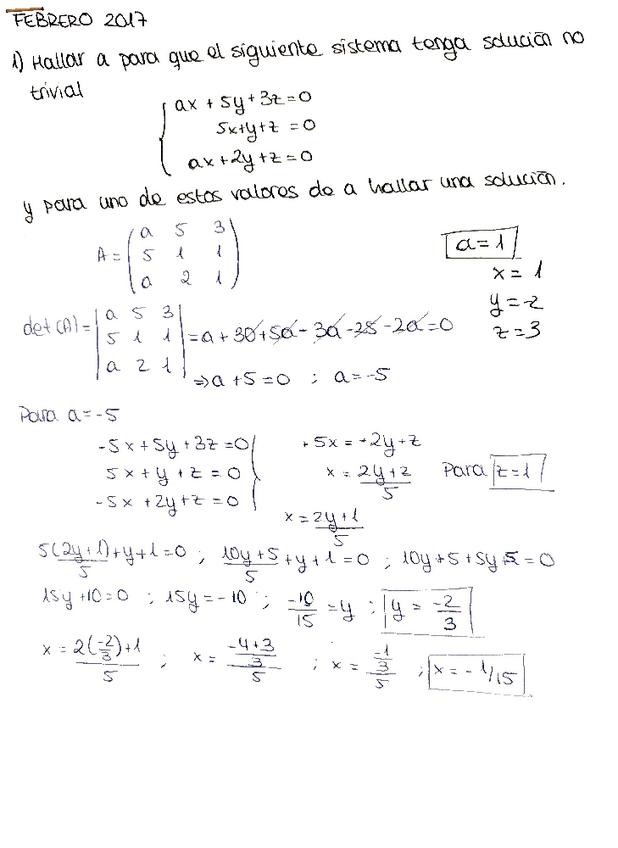 FEBRERO 2017
1) Hallar a para que el siguiente sistema tenga solución no
trivial
ax + 5y + 3z = 0
5x + y + z = 0
ax + 2y + z = 0
y para uno de estos valores de a hallar una solución.
A = (a 5 3
5 1 1
a 2 1)
a = 1
x = 1
y = -2
z = 3
det(A) = |a 5 3
5 1 1
a 2 1| = a + 30 + 5a - 3a - 25 - 2a = 0
⇒ a + 5 = 0 ; a = -5
Para a = -5
-5x + 5y + 3z = 0
5x + y + z = 0
-5x + 2y + z = 0
+5x = +2y + z
x = 2y + z / 5 Para z = 1
x = 2y + 1 / 5
5(2y + 1)/5 + y + 1 = 0 ; 10y + 5 / 5 + y + 1 = 0 ; 10y + 5 + 5y 5 = 0
15y + 10 = 0 ; 15y = -10 ; -10/15 = y ; y = -2/3
x = 2(-2/3) + 1 / 5 ; x = -4 + 3 / 3 / 5 ; x = -1/3 / 5 ; x = -1/15